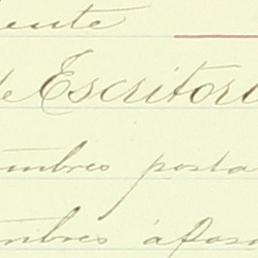 ente
de Escritori
mbres posta
mbres áfora